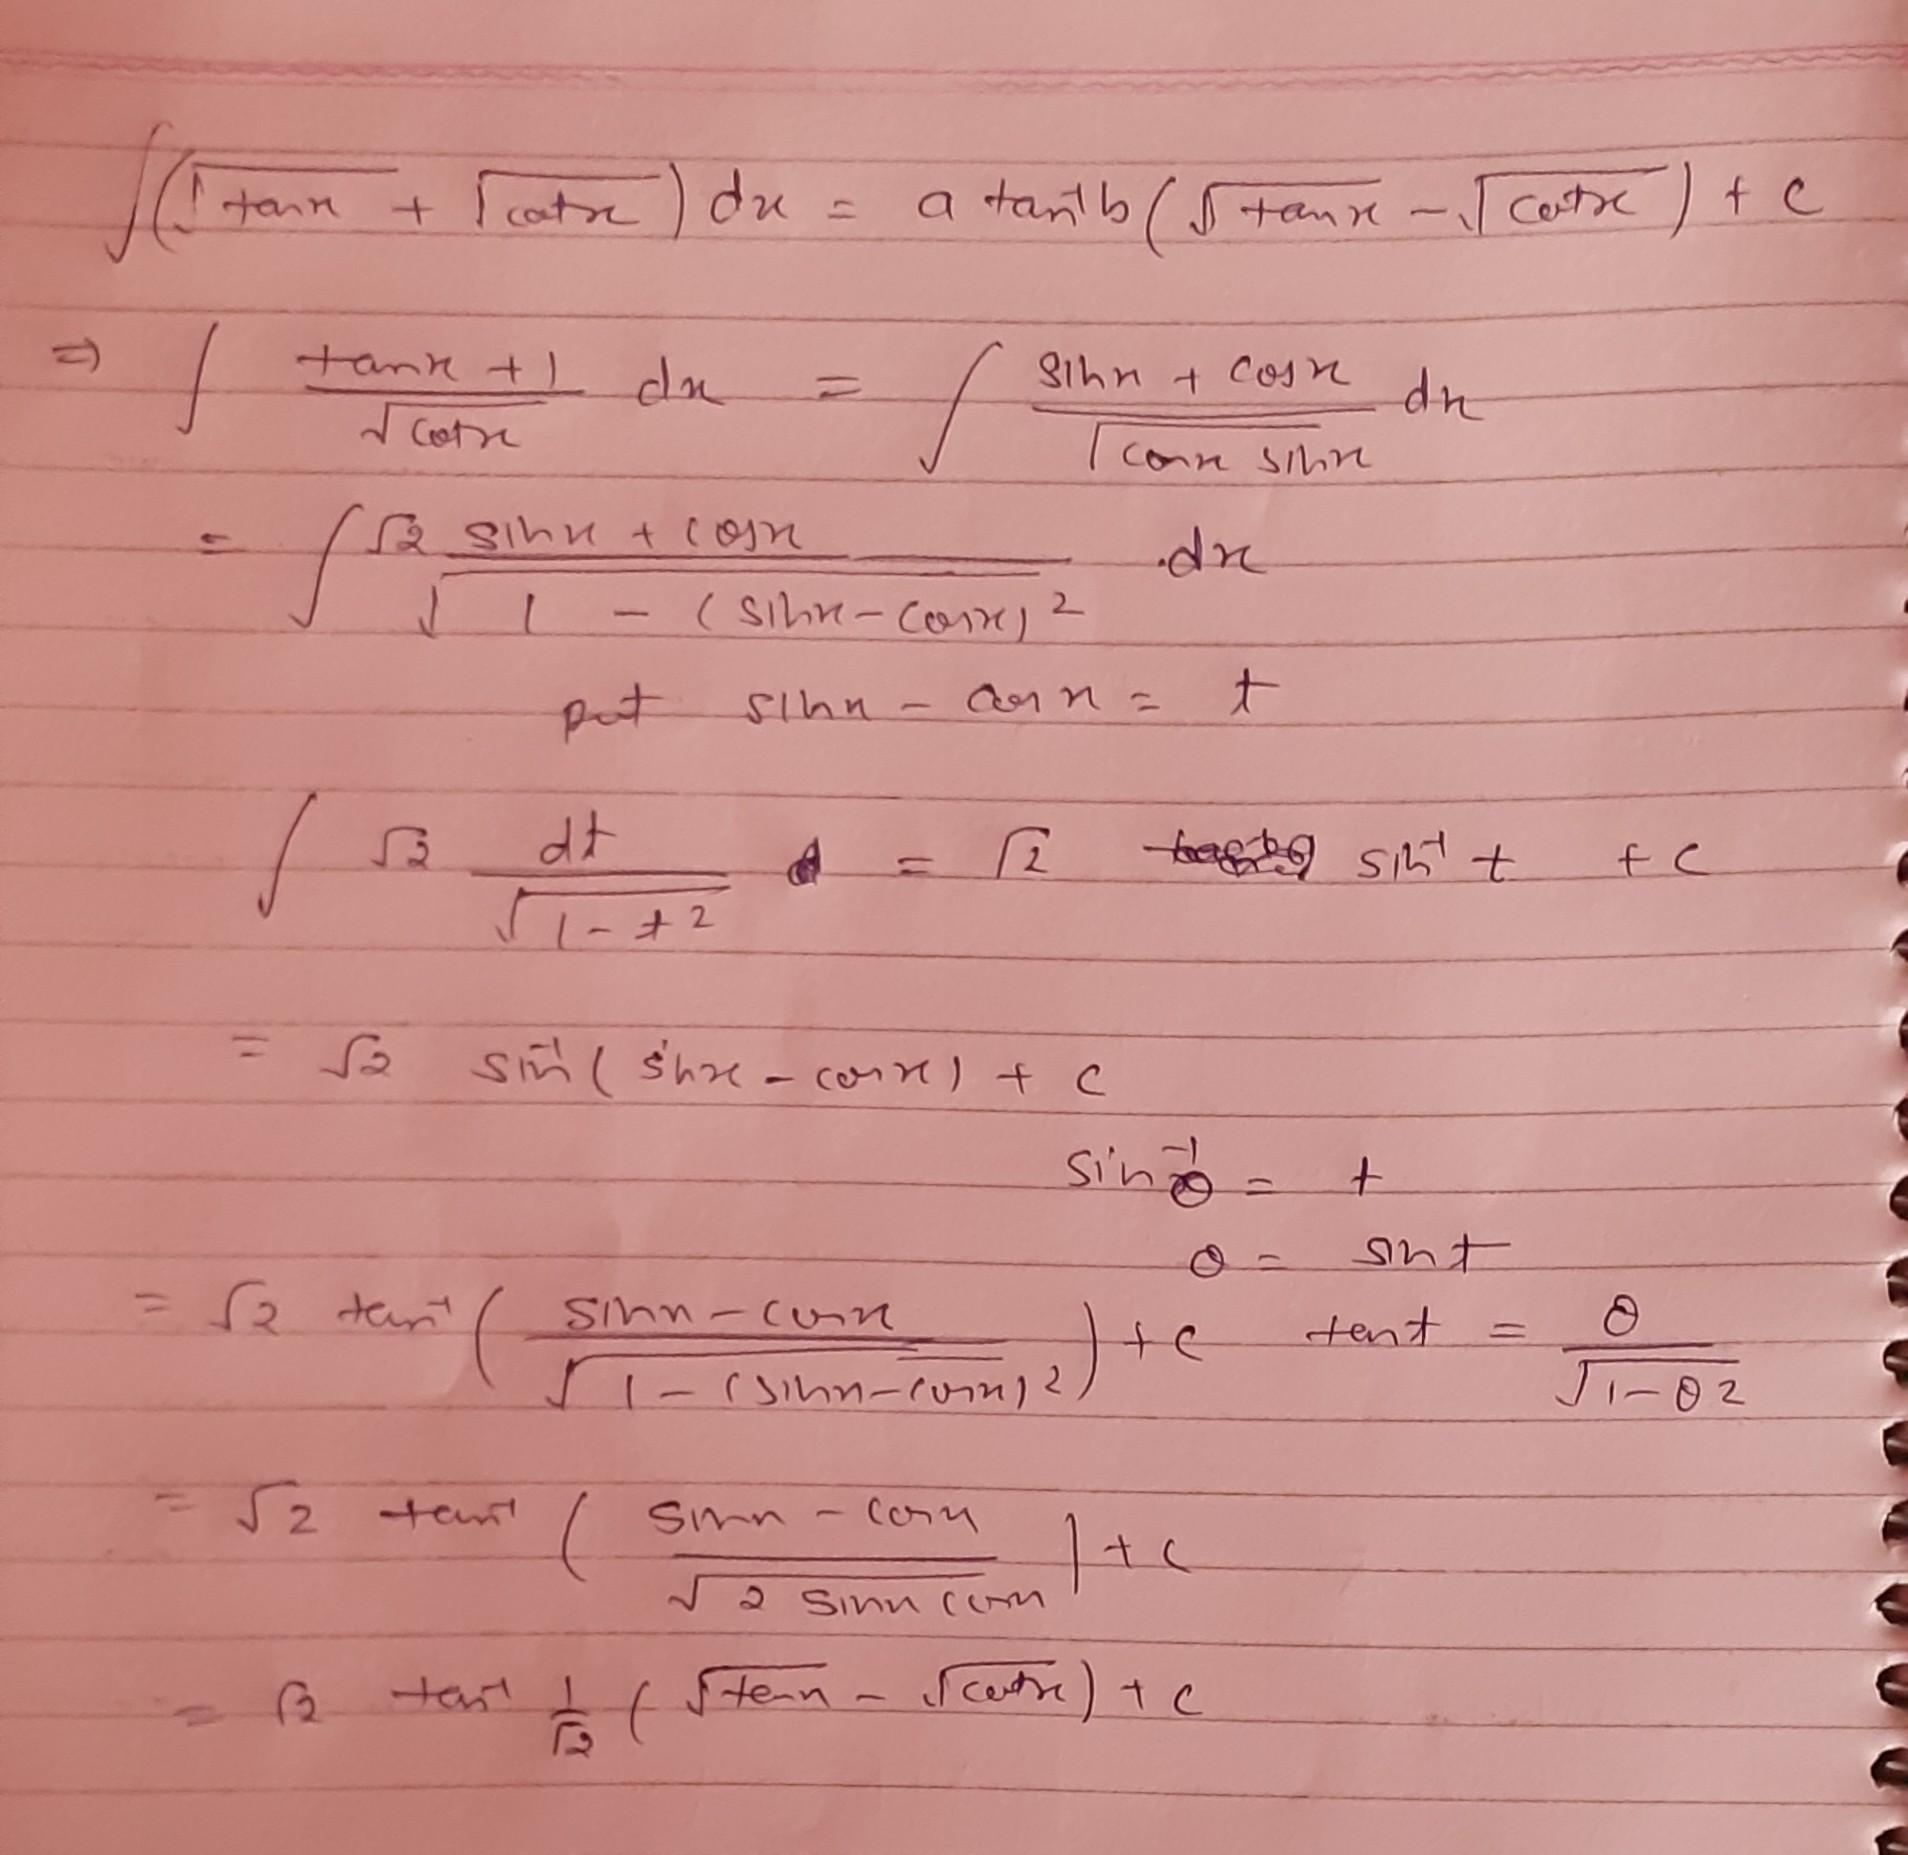 ∫(√tanx + √cotx) dx = a tan⁻¹ b(√tanx − √cotx) + c
⇒ ∫ (tanx + 1)/√cotx dx = ∫ (sinx + cosx)/√(cosx sinx) dx
= ∫ √2 (sinx + cosx)/√(1 − (sinx − cosx)²) .dx
put sinx − cosx = t
∫ √2 dt/√(1−t²) = √2 sin⁻¹ t + c
= √2 sin⁻¹(sinx − cosx) + c
sin⁻¹θ = t
θ = sint
= √2 tan⁻¹((sinx − cosx)/√(1 − (sinx − cosx)²)) + c tant = θ/√(1−θ²)
= √2 tan⁻¹((sinx − cosx)/√(2 sinx cosx)) + c
= √2 tan⁻¹ 1/√2 (√tanx − √cotx) + c